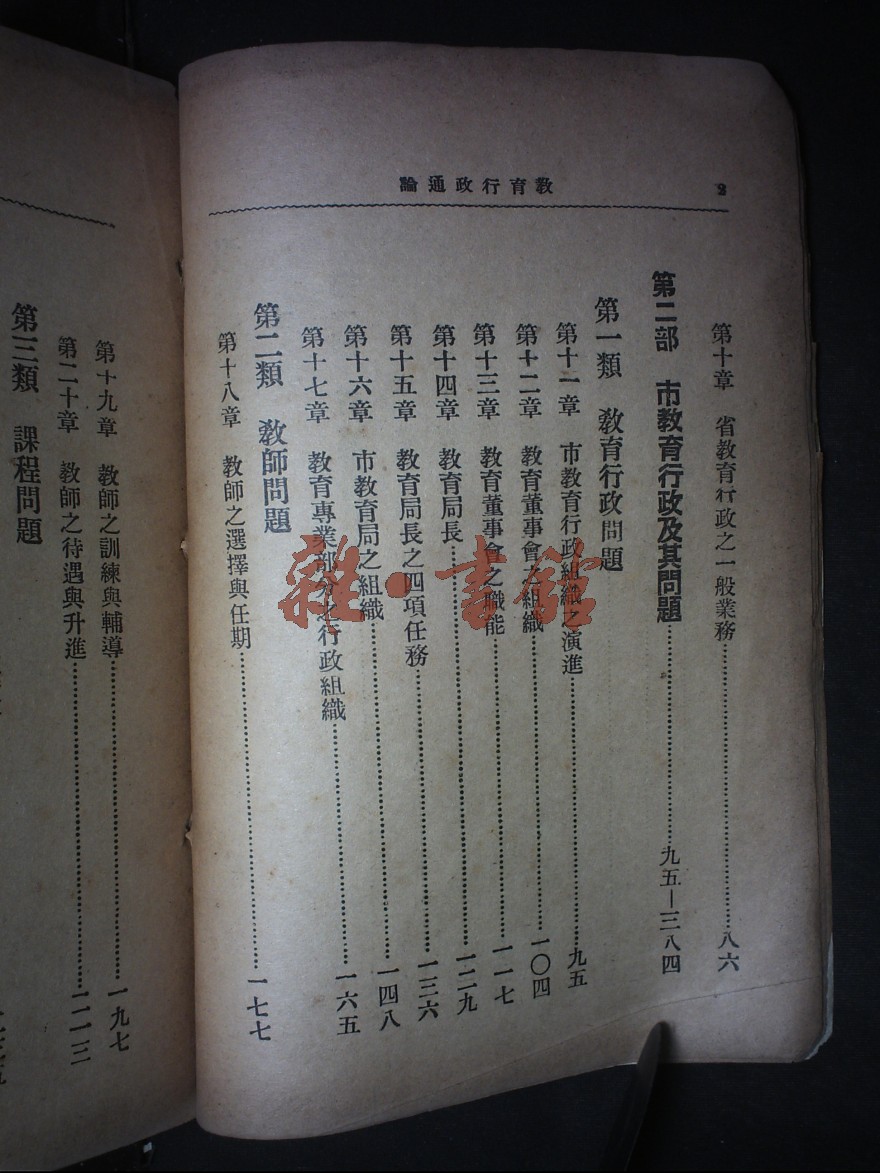 教育行政通論
2
第十章 省教育行政之一般業務……八六
第二部 市教育行政及其問題……九五—三八四
第一類 教育行政問題
第十一章 市教育行政組織之演進……九五
第十二章 教育董事會之組織……一〇四
第十三章 教育董事會之職能……一一七
第十四章 教育局長……一二九
第十五章 教育局長之四項任務……一三六
第十六章 市教育局之組織……一四八
第十七章 教育專業部分之行政組織……一六五
第二類 教師問題
第十八章 教師之選擇與任期……一七七
第十九章 教師之訓練與輔導……一九七
第二十章 教師之待遇與升進……二一三
第三類 課程問題
雜·書館